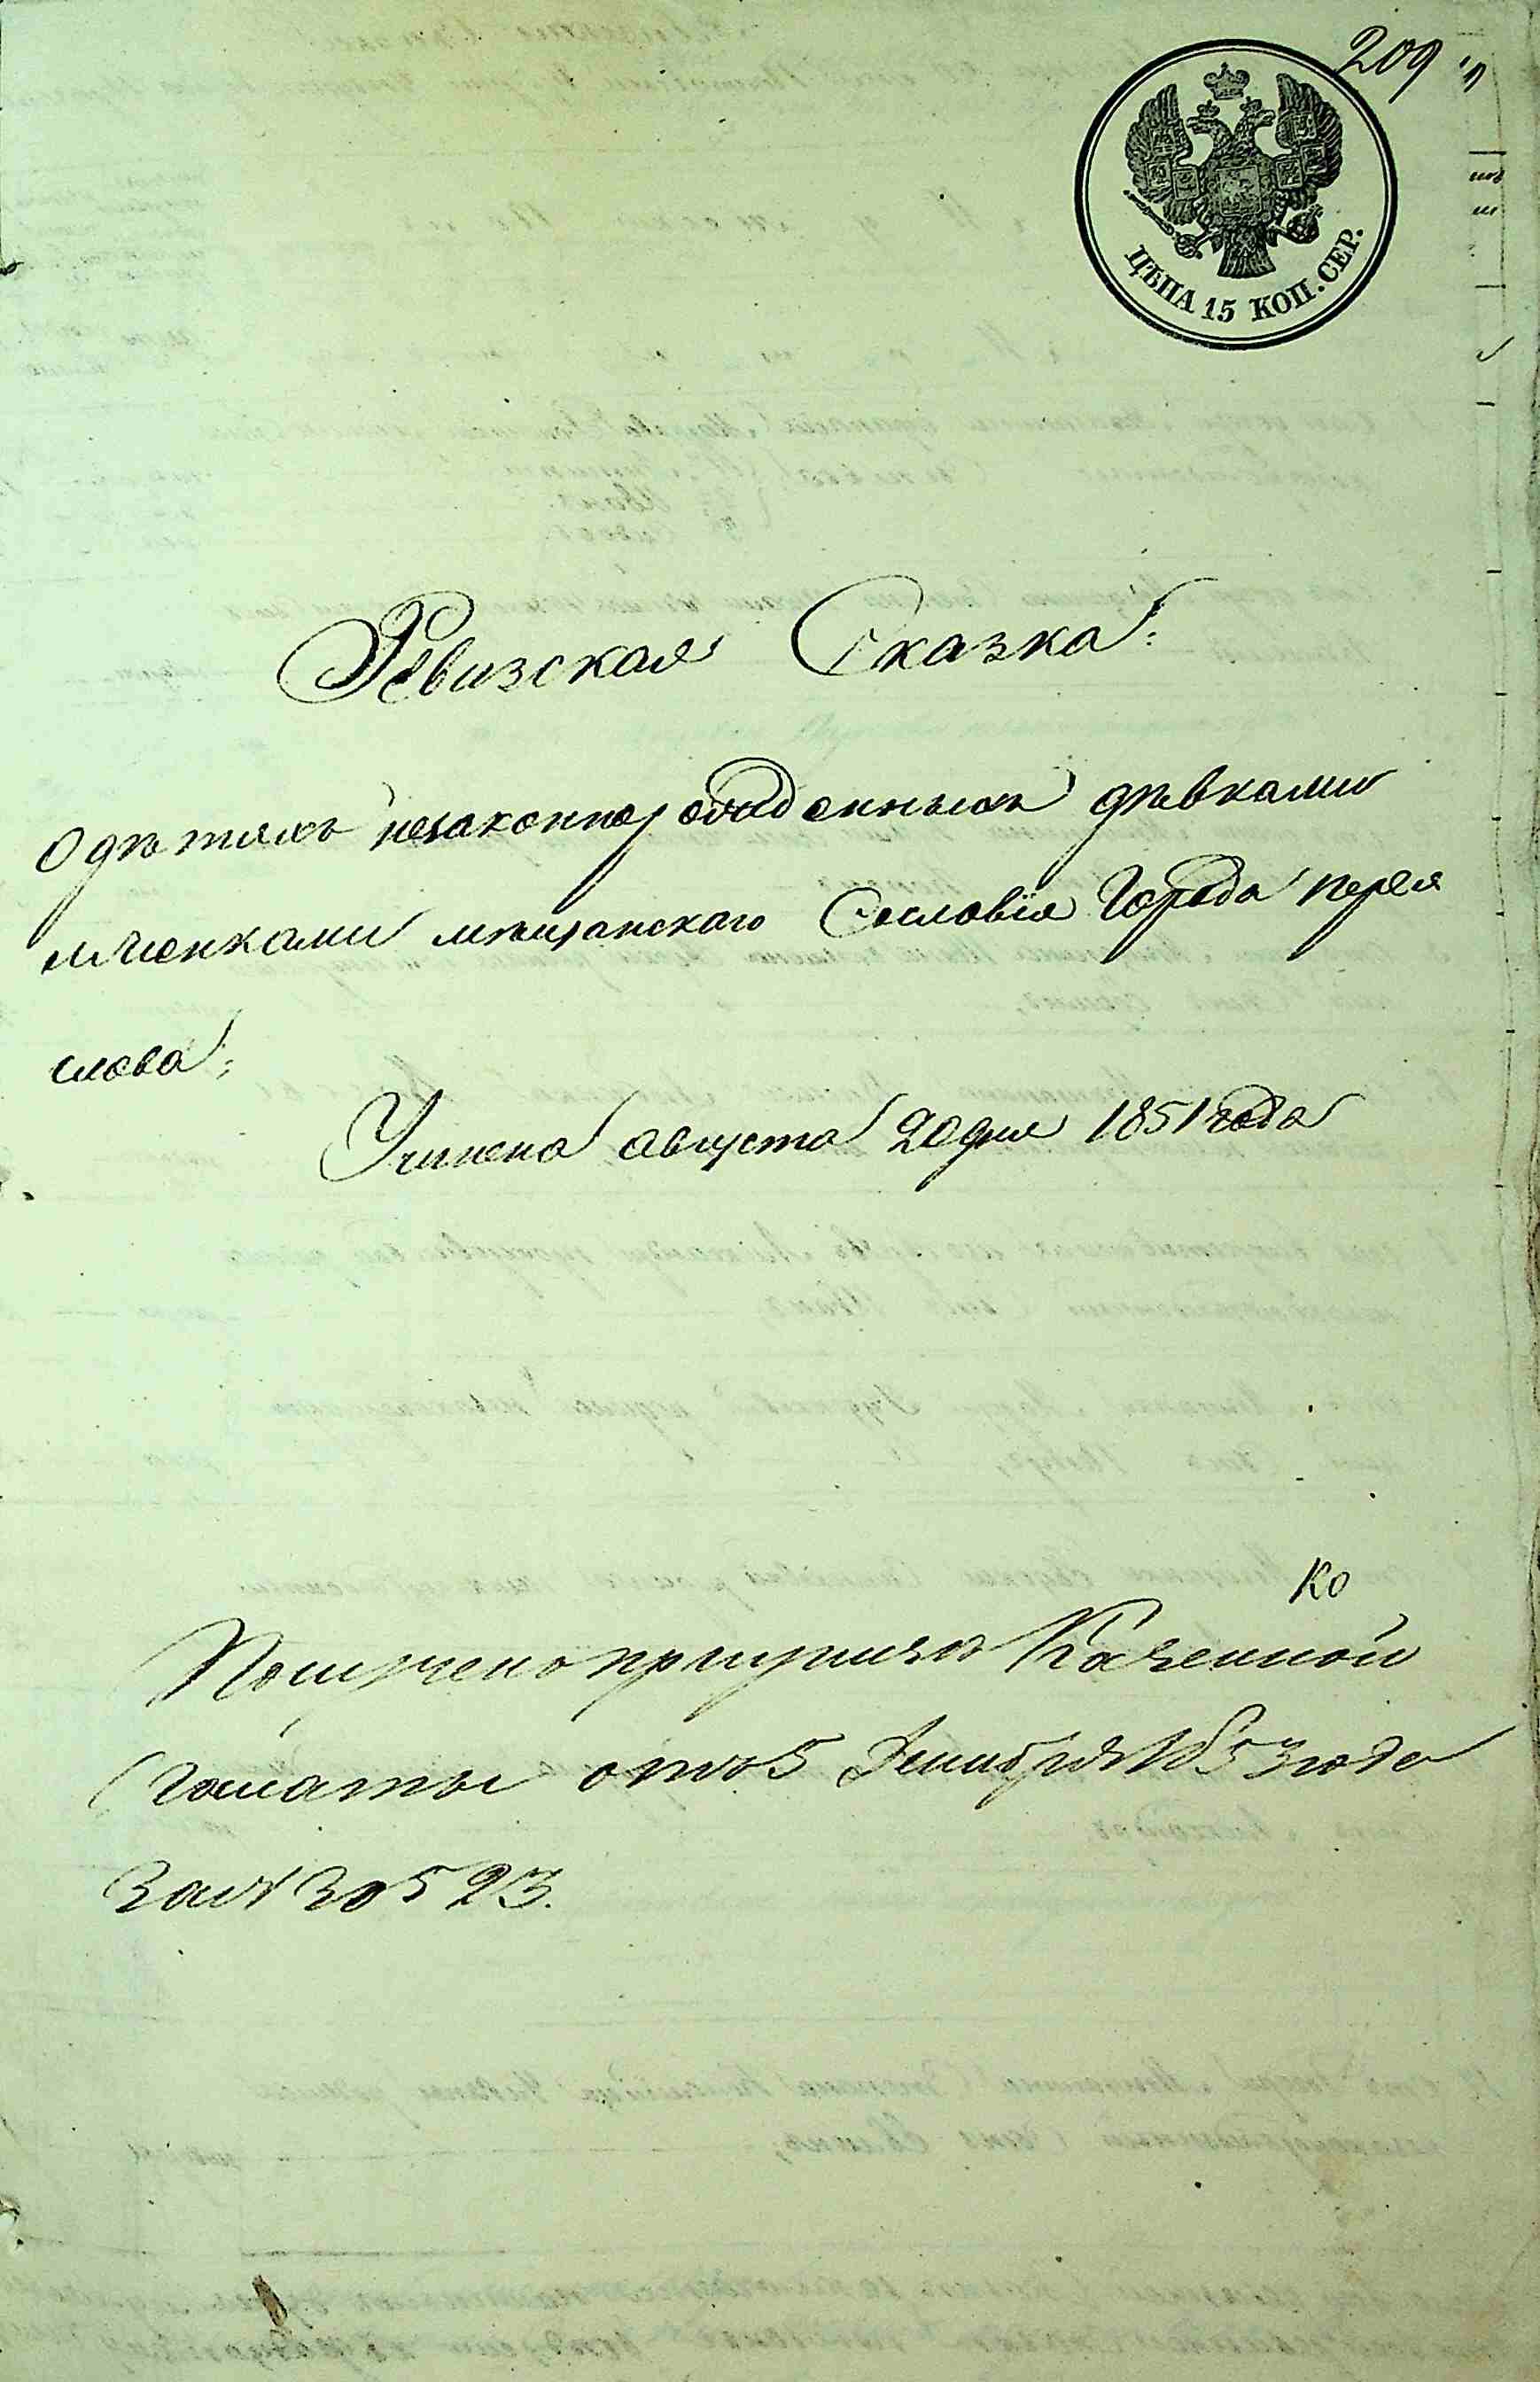 209
ЦѢНА 15 КОП. СЕР.
Ревизская Сказка:
О дѣтяхъ незаконнорожденныхъ дѣвками
мѣщанскаго Сословія Города Перея
слова;
Учинена августа 20 дня 1851 года
Ко
Получено при указѣ Казенной
Палаты отъ 5 Декабря 1853 года
за № 30523.